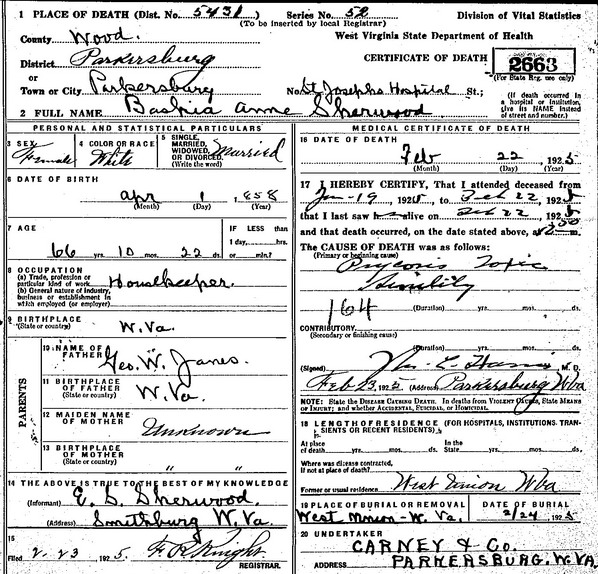 1 PLACE OF DEATH (Dist. No. 5431 Series No. 52 Division of Vital Statistics
(To be inserted by local Registrar)
County Wood. West Virginia State Department of Health
District Parkersburg CERTIFICATE OF DEATH 2663
or (For State Reg. use only)
Town or City Parkersburg No. St Josephs Hospital St.; (If death occurred in a hospital or institution, give its NAME instead of street and number.)
2 FULL NAME Bashia Anne Sherwood
PERSONAL AND STATISTICAL PARTICULARS
3 SEX Female
4 COLOR OR RACE White
5 SINGLE, MARRIED, WIDOWED, OR DIVORCED. (Write the word) Married
6 DATE OF BIRTH
Apr 1 1858
(Month) (Day) (Year)
7 AGE IF LESS than
66 yrs. 10 mos. 22 ds. 1 day, hrs.
or min.?
8 OCCUPATION
(a) Trade, profession or particular kind of work Housekeeper.
(b) General nature of industry, business or establishment in which employed (or employer)
9 BIRTHPLACE
(State or country) W.Va.
PARENTS
10 NAME OF FATHER Geo. W. Janes.
11 BIRTHPLACE OF FATHER
(State or country) W.Va.
12 MAIDEN NAME OF MOTHER Unknown
13 BIRTHPLACE OF MOTHER
(State or country) " "
14 THE ABOVE IS TRUE TO THE BEST OF MY KNOWLEDGE
(Informant) E. S. Sherwood.
(Address) Smithburg W.Va.
15
Filed 2. 23 1925. F R Knight.
REGISTRAR.
MEDICAL CERTIFICATE OF DEATH
16 DATE OF DEATH
Feb 22, 1925
(Month) (Day) (Year)
17 I HEREBY CERTIFY, That I attended deceased from
Jan-19 1925 to Feb 22, 1925
that I last saw h alive on Feb 22, 1925
and that death occurred, on the date stated above, at m.
The CAUSE OF DEATH was as follows:
(Primary or beginning cause)
Toxic
Senility
164 (Duration) yrs. mos. ds.
CONTRIBUTORY
(Secondary or finishing cause)
(Duration) yrs. mos. ds.
(Signed) M. D.
Feb 23, 192 (Address) Parkersburg Wva
NOTE: State the DISEASE CAUSING DEATH. In deaths from VIOLENT CAUSES, State MEANS OF INJURY; and whether ACCIDENTAL, SUICIDAL, or HOMICIDAL.
18 LENGTH OF RESIDENCE (FOR HOSPITALS, INSTITUTIONS, TRANSIENTS OR RECENT RESIDENTS)
At place of death yrs. mos. ds. In the State yrs. mos. ds.
Where was disease contracted,
if not at place of death?
Former or usual residence West Union Wva
19 PLACE OF BURIAL OR REMOVAL DATE OF BURIAL
West Union - W. Va. 2/24 1925
20 UNDERTAKER CARNEY & Co.
ADDRESS PARKERSBURG. W.VA.